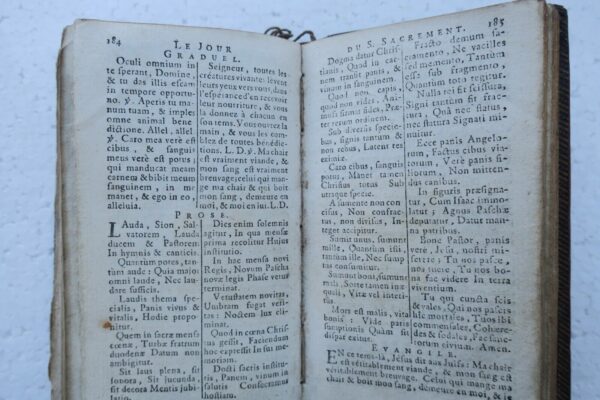 184
LE JOUR
GRADUEL.
Oculi omnium in
te sperant, Domine,
& tu das illis escam
in tempore opportu-
no. ℣. Aperis tu ma-
num tuam, & imples
omne animal bene
dictione. Allel, allel.
℣. Caro mea verè est
cibus, & sanguis
meus verè est potus;
qui manducat meam
carnem & bibit meum
sanguinem, in me
manet, & ego in eo,
alleluia.
Seigneur, toutes les
créatures vivante: levent
leurs yeux vers vous, dans
l'espérance d'en recevoir
leur nourriture, & vous
la donnez à chacun en
son tems. Vous ouvrez la
main, & vous les com-
blez de toutes bénédic-
tions. L. D. ℣. Ma chair
est vraiment viande, &
mon sang est vraiment
breuvage; celui qui man-
ge ma chair & qui boit
mon sang, demeure en
moi, & moi en lui. L. D.
PROSE.
Lauda, Sion, Sal-
vatorem, Lauda
ducem & Pastorem,
In hymnis & canticis.
Quantùm potes, tan-
tùm aude: Quia major
omni laude, Nec lau-
dare sufficis.
Laudis thema spe-
cialis, Panis vivus &
vitalis, Hodie propo-
nitur.
Quem in sacræ mensâ
cœnæ, Turbæ fratrum
duodenæ Datum non
ambigitur.
Sit laus plena, sit
sonora, Sit jucunda,
sit decora Mentis jubi-
latio.
Dies enim solemnis
agitur, In qua mensæ
prima recolitur Hujus
institutio.
In hac mensâ novi
Regis, Novum Pascha
novæ legis Phase vetus
terminat.
Vetustatem novitas,
Umbram fugat veri-
tas: Noctem lux eli-
minat.
Quod in cœna Chris-
tus gessit, Faciendum
hoc expressit In sui me-
moriam.
Docti sacris institu-
tis, Panem, vinum in
salutis Consecramus
hostiam.
DU S. SACREMENT.
185
Dogma datur Chris-
tianis, Quod in car-
nem transit panis, &
vinum in sanguinem.
Quod non capis,
quod non vides, Ani-
mosa firmat fides, Præ-
ter rerum ordinem.
Sub diversis specie-
bus, signis tantum &
non rebus, Latent res
eximiæ.
Caro cibus, sanguis
potus, Manet tamen
Christus totus Sub
utraque specie.
A sumente non con-
cisus, Non confrac-
tus, non divisus, In-
teger accipitur.
Sumit unus, sumunt
mille, Quantùm isti,
tantùm ille, Nec sump-
tus consumitur.
Sumunt boni, sumunt
mali, Sorte tamen inæ-
quali, Vitæ vel interi-
tus.
Mors est malis, vita
bonis: Vide paris
sumptionis Quàm sit
dispar exitus.
Fracto demum sa-
cramento, Ne vacilles
sed memento, Tantum
esse sub fragmento,
Quantum toto tegitur.
Nulla rei fit scissura,
Signi tantùm fit frac-
tura, Quâ nec status,
nec statura Signati mi-
nuitur.
Ecce panis Angelo-
rum, Factus cibus via-
torum, Verè panis fi-
liorum, Non mitten-
dus canibus.
In figuris præsigna-
tur, Cum Isaac immo-
latur; Agnus Paschæ
deputatur, Datur man-
na patribus.
Bone Pastor, panis
vere, Jesu, nostri mi-
serere; Tu nos pasce,
nos tuere: Tu nos bo-
na fac videre In terra
viventium.
Tu qui cuncta scis
& vales, Qui nos pascis
hîc mortales, Tuos ibi
commensales, Cohære-
des & sodales, Fac sanc-
torum civium. Amen.
EVANGILE.
EN ce tems-là, Jésus dit aux Juifs: Ma chair
est véritablement viande, & mon sang est
véritablement breuvage. Celui qui mange ma
chair & boit mon sang, demeure en moi, & je